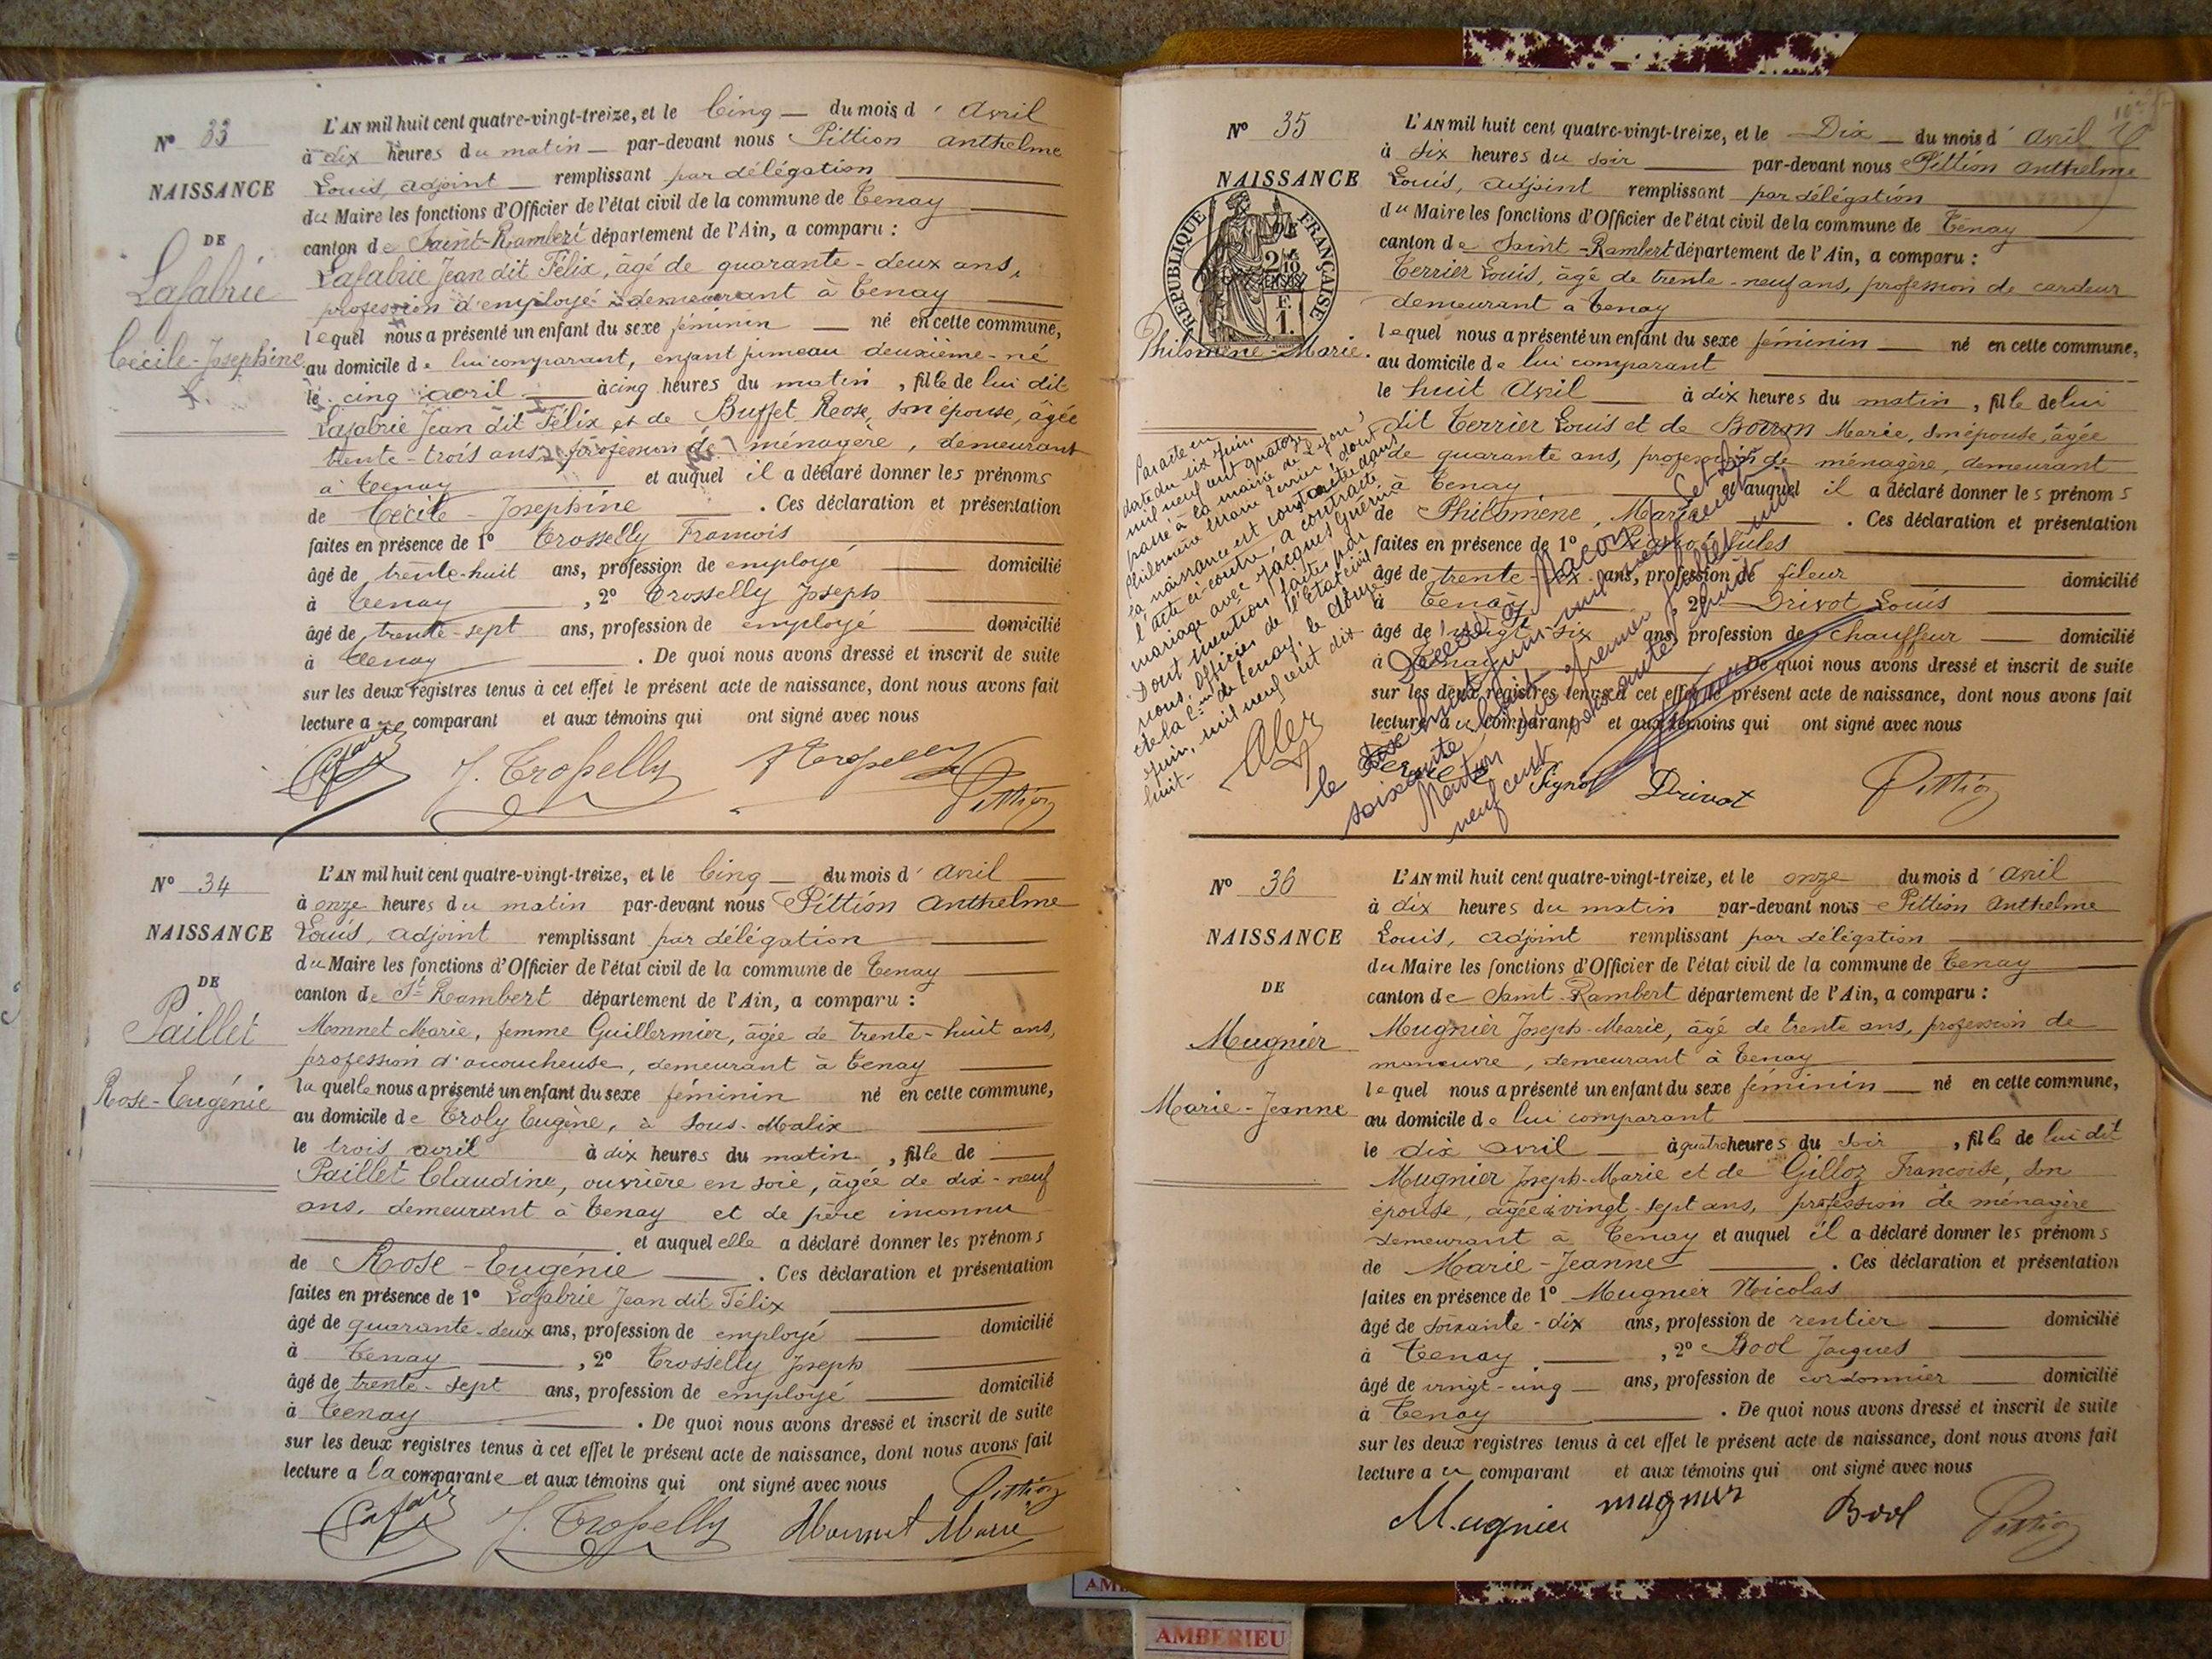 N° 33
NAISSANCE
DE
Lafabrie
Cécile-Josephine
L'AN mil huit cent quatre-vingt-treize, et le Cinq du mois d'Avril
à dix heures du matin par-devant nous Pittion Anthelme
Louis, adjoint remplissant par délégation
du Maire les fonctions d'Officier de l'état civil de la commune de Tenay
canton de Saint-Rambert département de l'Ain, a comparu :
Lafabrie Jean dit Félix, âgé de quarante-deux ans,
profession d'employé demeurant à Tenay
lequel nous a présenté un enfant du sexe féminin né en cette commune,
au domicile de lui comparant, enfant jumeau deuxième-né
le cinq avril à cinq heures du matin, fille de lui dit
Lafabrie Jean dit Félix et de Buffet Rose, son épouse, âgée
trente-trois ans, profession de ménagère, demeurant
à Tenay et auquel il a déclaré donner les prénoms
de Cécile-Josephine. Ces déclaration et présentation
faites en présence de 1° Trosselly Francois
âgé de trente-huit ans, profession de employé domicilié
à Tenay, 2° Trosselly Joseph
âgé de trente-sept ans, profession de employé domicilié
à Tenay. De quoi nous avons dressé et inscrit de suite
sur les deux registres tenus à cet effet le présent acte de naissance, dont nous avons fait
lecture au comparant et aux témoins qui ont signé avec nous
J. Trosselly Pittion
N° 34
NAISSANCE
DE
Paillet
Rose-Eugénie
L'AN mil huit cent quatre-vingt-treize, et le Cinq du mois d'Avril
à onze heures du matin par-devant nous Pittion Anthelme
Louis, adjoint remplissant par délégation
du Maire les fonctions d'Officier de l'état civil de la commune de Tenay
canton de St-Rambert département de l'Ain, a comparu :
Monnet Marie, femme Guillermier, âgée de trente-huit ans,
profession d'accoucheuse, demeurant à Tenay
laquelle nous a présenté un enfant du sexe féminin né en cette commune,
au domicile de Troly Eugène, à Sous-Malix
le trois avril à dix heures du matin, fille de
Paillet Claudine, ouvrière en soie, âgée de dix-neuf
ans, demeurant à Tenay et de père inconnu
et auquel elle a déclaré donner les prénoms
de Rose-Eugénie. Ces déclaration et présentation
faites en présence de 1° Lafabrie Jean dit Félix
âgé de quarante-deux ans, profession de employé domicilié
à Tenay, 2° Trosselly Joseph
âgé de trente-sept ans, profession de employé domicilié
à Tenay. De quoi nous avons dressé et inscrit de suite
sur les deux registres tenus à cet effet le présent acte de naissance, dont nous avons fait
lecture a la comparante et aux témoins qui ont signé avec nous
Pittion
J. Trosselly Monnet Marie
N° 35
NAISSANCE
DE
RÉPUBLIQUE FRANÇAISE
Philomène-Marie.
L'AN mil huit cent quatre-vingt-treize, et le Dix du mois d'Avril
à six heures du soir par-devant nous Pittion Anthelme
Louis, adjoint remplissant par délégation
du Maire les fonctions d'Officier de l'état civil de la commune de Tenay
canton de Saint-Rambert département de l'Ain, a comparu :
Terrier Louis, âgé de trente-neuf ans, profession de cardeur
demeurant à Tenay
lequel nous a présenté un enfant du sexe féminin né en cette commune,
au domicile de lui comparant
le huit Avril à dix heures du matin, fille de lui
dit Terrier Louis et de Marie, son épouse, âgée
de quarante ans, profession de ménagère, demeurant
à Tenay et auquel il a déclaré donner les prénoms
de Philomène, Marie. Ces déclaration et présentation
faites en présence de 1° Jules
âgé de trente ans, profession de fileur domicilié
à Tenay 2° Drivot Louis
âgé de vingt-six ans, profession de chauffeur domicilié
à Tenay De quoi nous avons dressé et inscrit de suite
sur les deux registres tenus à cet effet le présent acte de naissance, dont nous avons fait
lecture au comparant et aux témoins qui ont signé avec nous
Drivot Pittion
Par acte en
date du six juin
mil neuf cent quatorze
passé à la mairie de Lyon,
Philomène Marie Terrier, dont
la naissance est constatée dans
l'acte ci-contre, a contracté
mariage avec Jacques Guérin
Dont mention faite par
nous, Officier de l'Etat civil
de la Cne de Tenay, le douze
juin, mil neuf cent dix
huit.
Décédée à Macon
le juin mil neuf cent
soixante
Mention premier juillet mil
neuf cent soixante huit
N° 36
NAISSANCE
DE
Mugnier
Marie-Jeanne
L'AN mil huit cent quatre-vingt-treize, et le onze du mois d'Avril
à dix heures du matin par-devant nous Pittion Anthelme
Louis, adjoint remplissant par délégation
du Maire les fonctions d'Officier de l'état civil de la commune de Tenay
canton de Saint-Rambert département de l'Ain, a comparu :
Mugnier Joseph-Marie, âgé de trente ans, profession de
manœuvre, demeurant à Tenay
lequel nous a présenté un enfant du sexe féminin né en cette commune,
au domicile de lui comparant
le dix avril à quatre heures du soir, fille de lui dit
Mugnier Joseph-Marie et de Gilloz Francoise, son
épouse, âgée de vingt-sept ans, profession de ménagère
demeurant à Tenay et auquel il a déclaré donner les prénoms
de Marie-Jeanne. Ces déclaration et présentation
faites en présence de 1° Mugnier Nicolas
âgé de soixante-dix ans, profession de rentier domicilié
à Tenay, 2° Bool Jacques
âgé de vingt-cinq ans, profession de cordonnier domicilié
à Tenay. De quoi nous avons dressé et inscrit de suite
sur les deux registres tenus à cet effet le présent acte de naissance, dont nous avons fait
lecture au comparant et aux témoins qui ont signé avec nous
Mugnier mugnier Bool Pittion
AMBERIEU